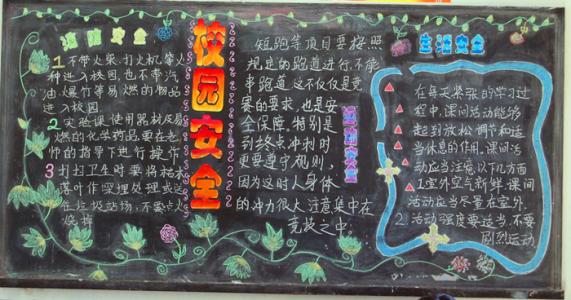 消防安全
1 不带火柴、打火机等火
种进入校园,也不带汽
油、爆竹等易燃的物品
进入校园
2 实验课使用器材及易
燃的化学药品要在老
师的指导下进行操作
3 打扫卫生时要将枯木
落叶作深埋处理或送
往垃圾站场,不要点火
烧掉
校园安全
短跑等项目要按照
规定的跑道进行,不能
串跑道这不仅仅是竞
赛的要求,也是安
全保障。特别是
到终点冲刺时
更要遵守规则,
因为这时人身体
的冲力很大注意集中在
竞技之中。
运动安全
生活安全
在每天紧张的学习过
程中,课间活动能够
起到放松、调节和适
当休息的作用。课间活
动应当注意以下几方面
1.室外空气新鲜,课间
活动应当尽量在室外。
2.活动强度要适当,不要
剧烈运动。